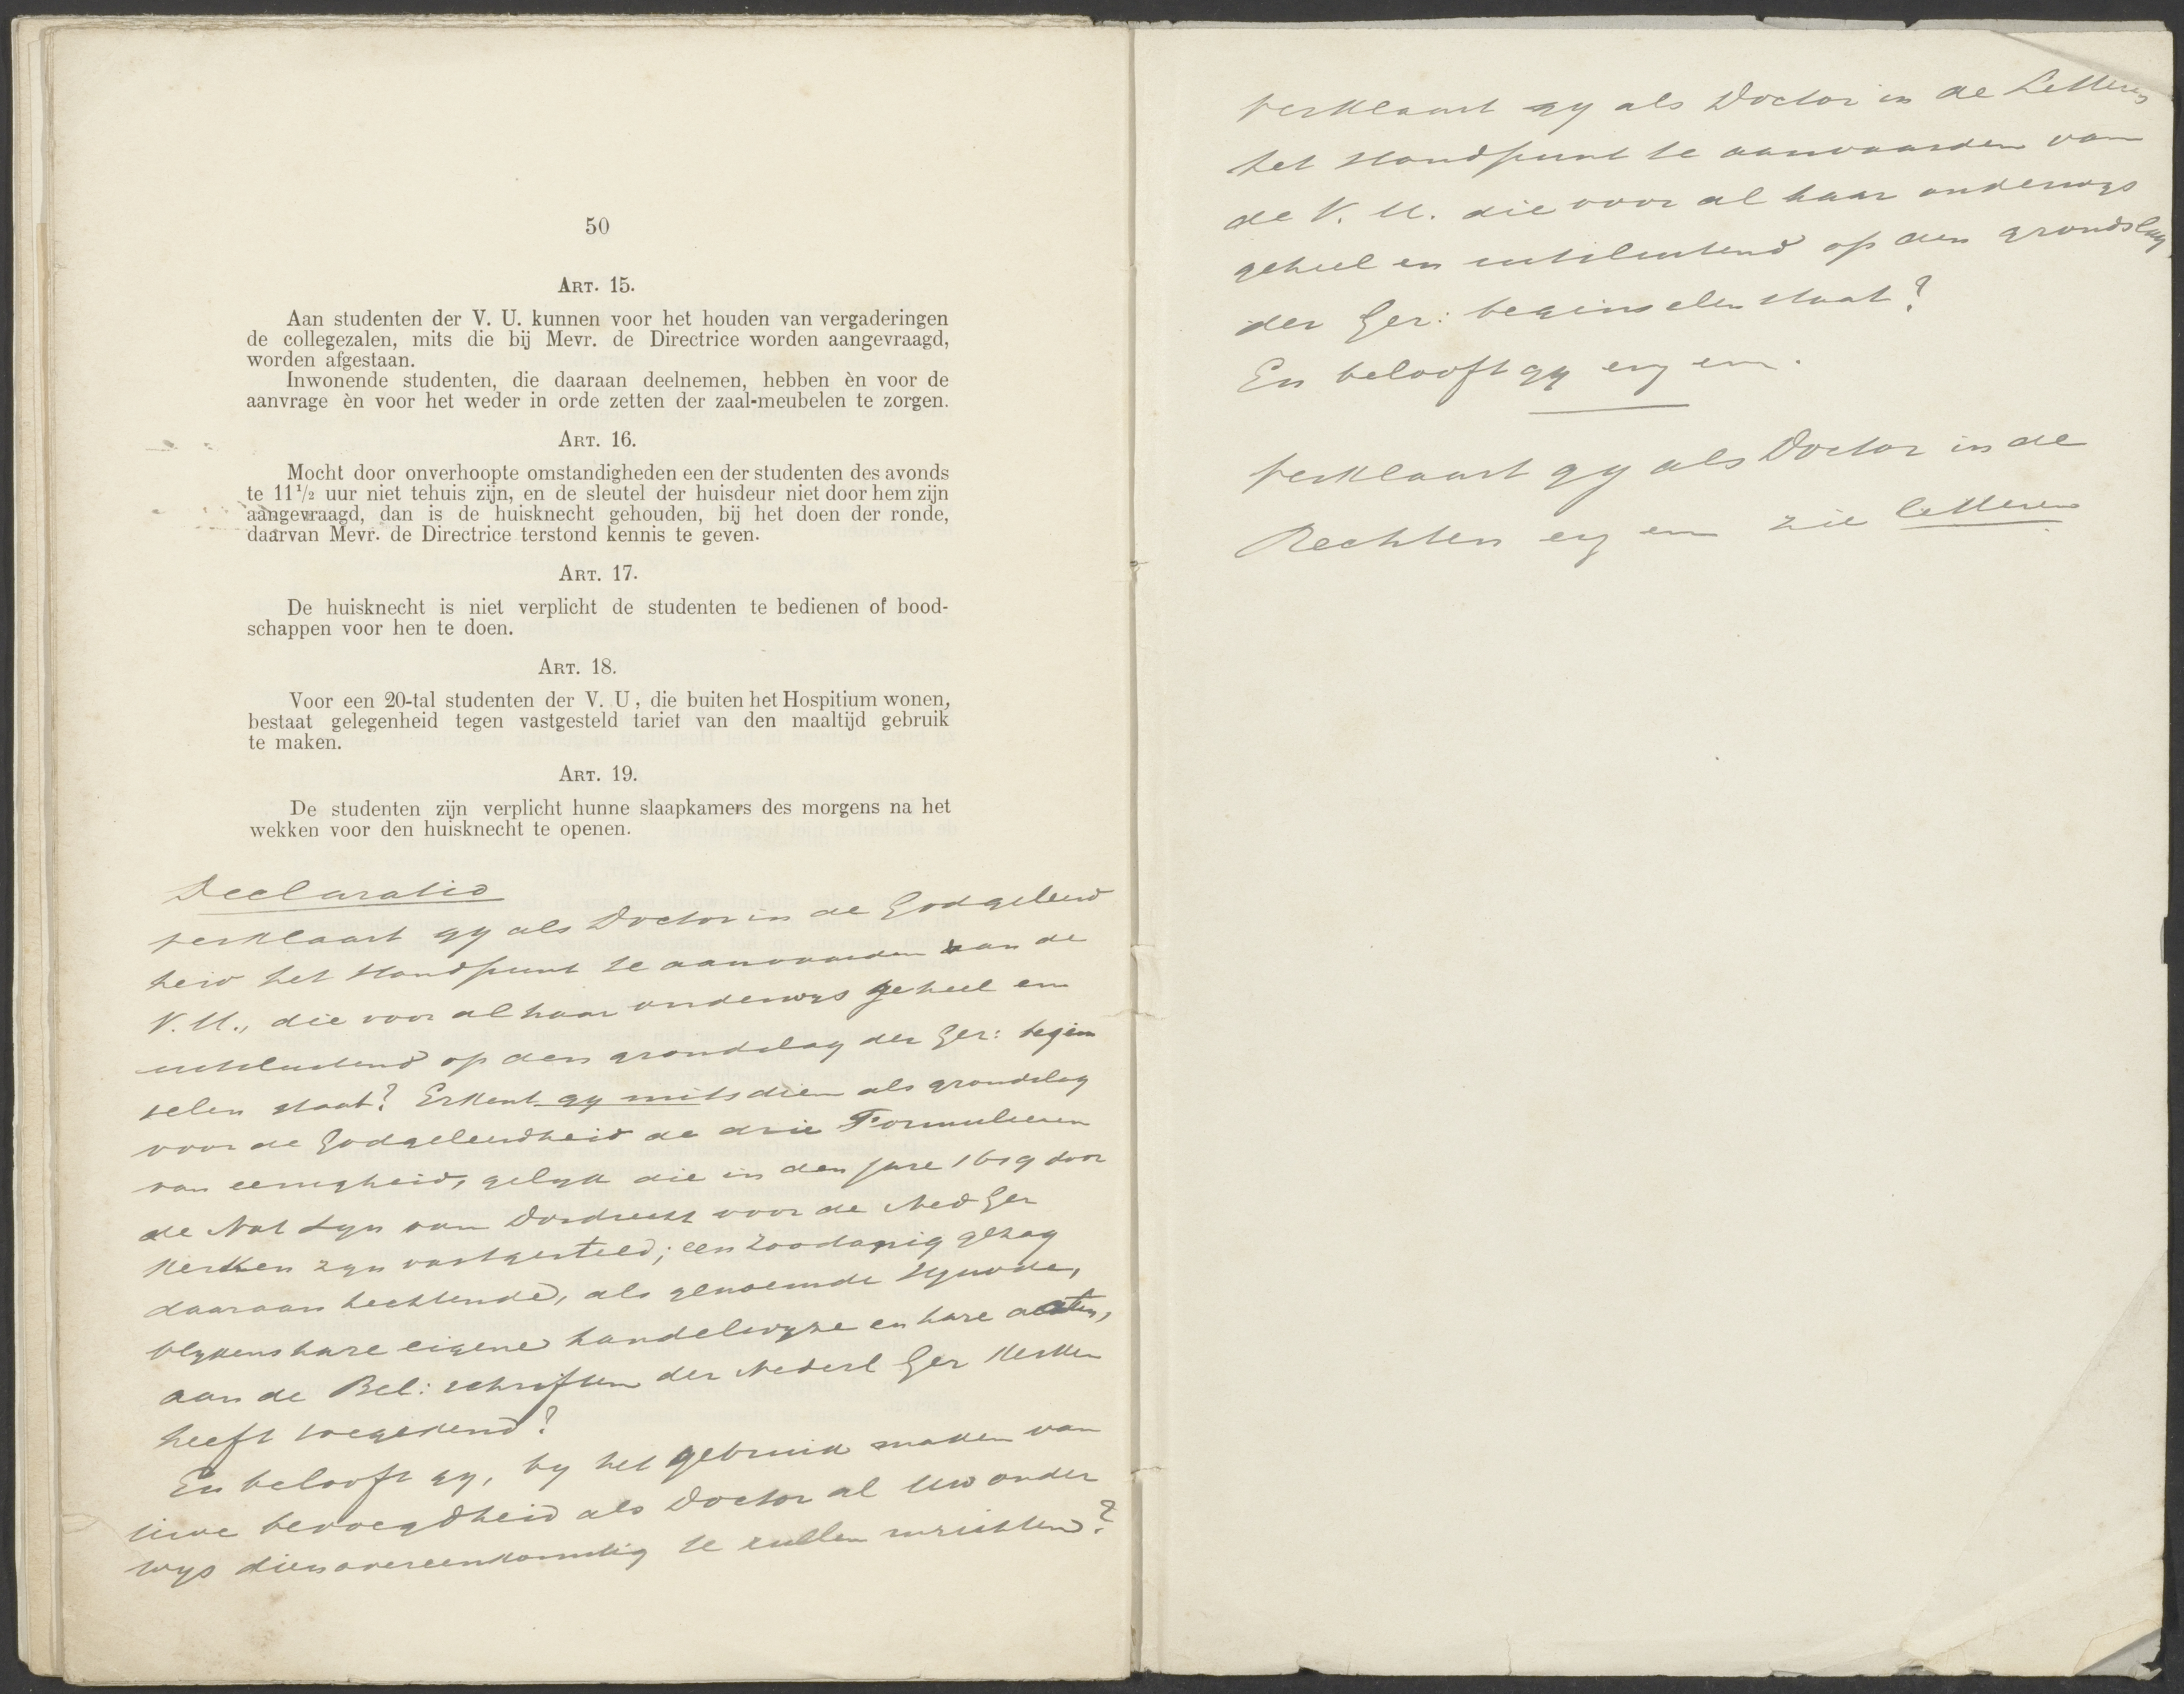 50
ART. 15.
Aan studenten der V. U. kunnen voor het houden van vergaderingen
de collegezalen, mits die bij Mevr. de Directrice worden aangevraagd,
worden afgestaan.
Inwonende studenten, die daaraan deelnemen, hebben èn voor de
aanvrage èn voor het weder in orde zetten der zaal-meubelen te zorgen.
ART. 16.
Mocht door onverhoopte omstandigheden een der studenten des avonds
te 11½ uur niet tehuis zijn, en de sleutel der huisdeur niet door hem zijn
aangevraagd, dan is de huisknecht gehouden, bij het doen der ronde,
daarvan Mevr. de Directrice terstond kennis te geven.
ART. 17.
De huisknecht is niet verplicht de studenten te bedienen of bood-
schappen voor hen te doen.
ART. 18.
Voor een 20-tal studenten der V. U, die buiten het Hospitium wonen,
bestaat gelegenheid tegen vastgesteld tarief van den maaltijd gebruik
te maken.
ART. 19.
De studenten zijn verplicht hunne slaapkamers des morgens na het
wekken voor den huisknecht te openen.
Declaratio
verklaart gy als Doctor in de Godgeleerd
heid het standpunt te aanvaarden van de
V.U., die voor al haar onderwys geheel en
uitsluitend op den grondslag der Ger: begin
selen staat? Erkent gy mitsdien als grondslag
voor de Godgeleerdheid de drie Formulieren
van eenigheid, gelyk die in den jare 1619 door
de Nat Syn van Dordrecht voor de Ned Ger
Kerken zyn vastgesteld; een zoodanig gezag
daaraan hechtende, als genoemde Synode,
blykens hare eigene handelwyze en hare acten,
aan de Bel: schriften der Nederl Ger Kerken
heeft toegekend?
En belooft gy, by het gebruik maken van
uwe bevoegdheid als Doctor al uw onder
wys dienovereenkomstig te zullen inrichten?
verklaart gy als Doctor in de Letteren
het standpunt te aanvaarden van
de V. U. die voor al haar onderwys
geheel en uitsluitend op den grondslag
der Ger: beginselen staat?
En belooft gy enz enz.
verklaart gy als Doctor in de
Rechten enz enz zie letteren